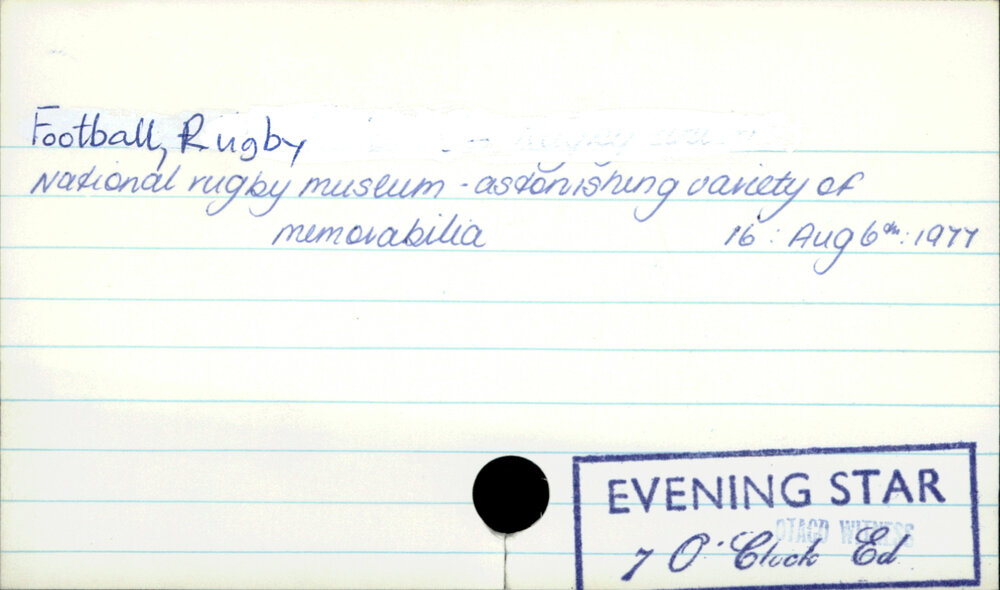 Football, Rugby
National rugby museum - astonishing variety of
memorabilia 16 : Aug 6th : 1977
EVENING STAR
OTAGO WITNESS
7 O'Clock Ed